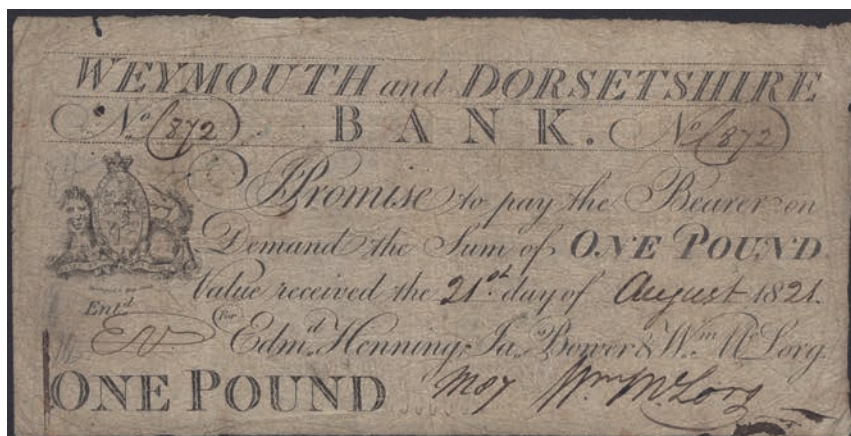 WEYMOUTH and DORSETSHIRE
No 1872 BANK. No 1872
I Promise to pay the Bearer on
Demand the Sum of ONE POUND
Value received the 21st day of August 1821.
Entd
For Edmd. Henning, Ja. Bower & Wm. Mc Lorg.
ONE POUND Wm McLorg